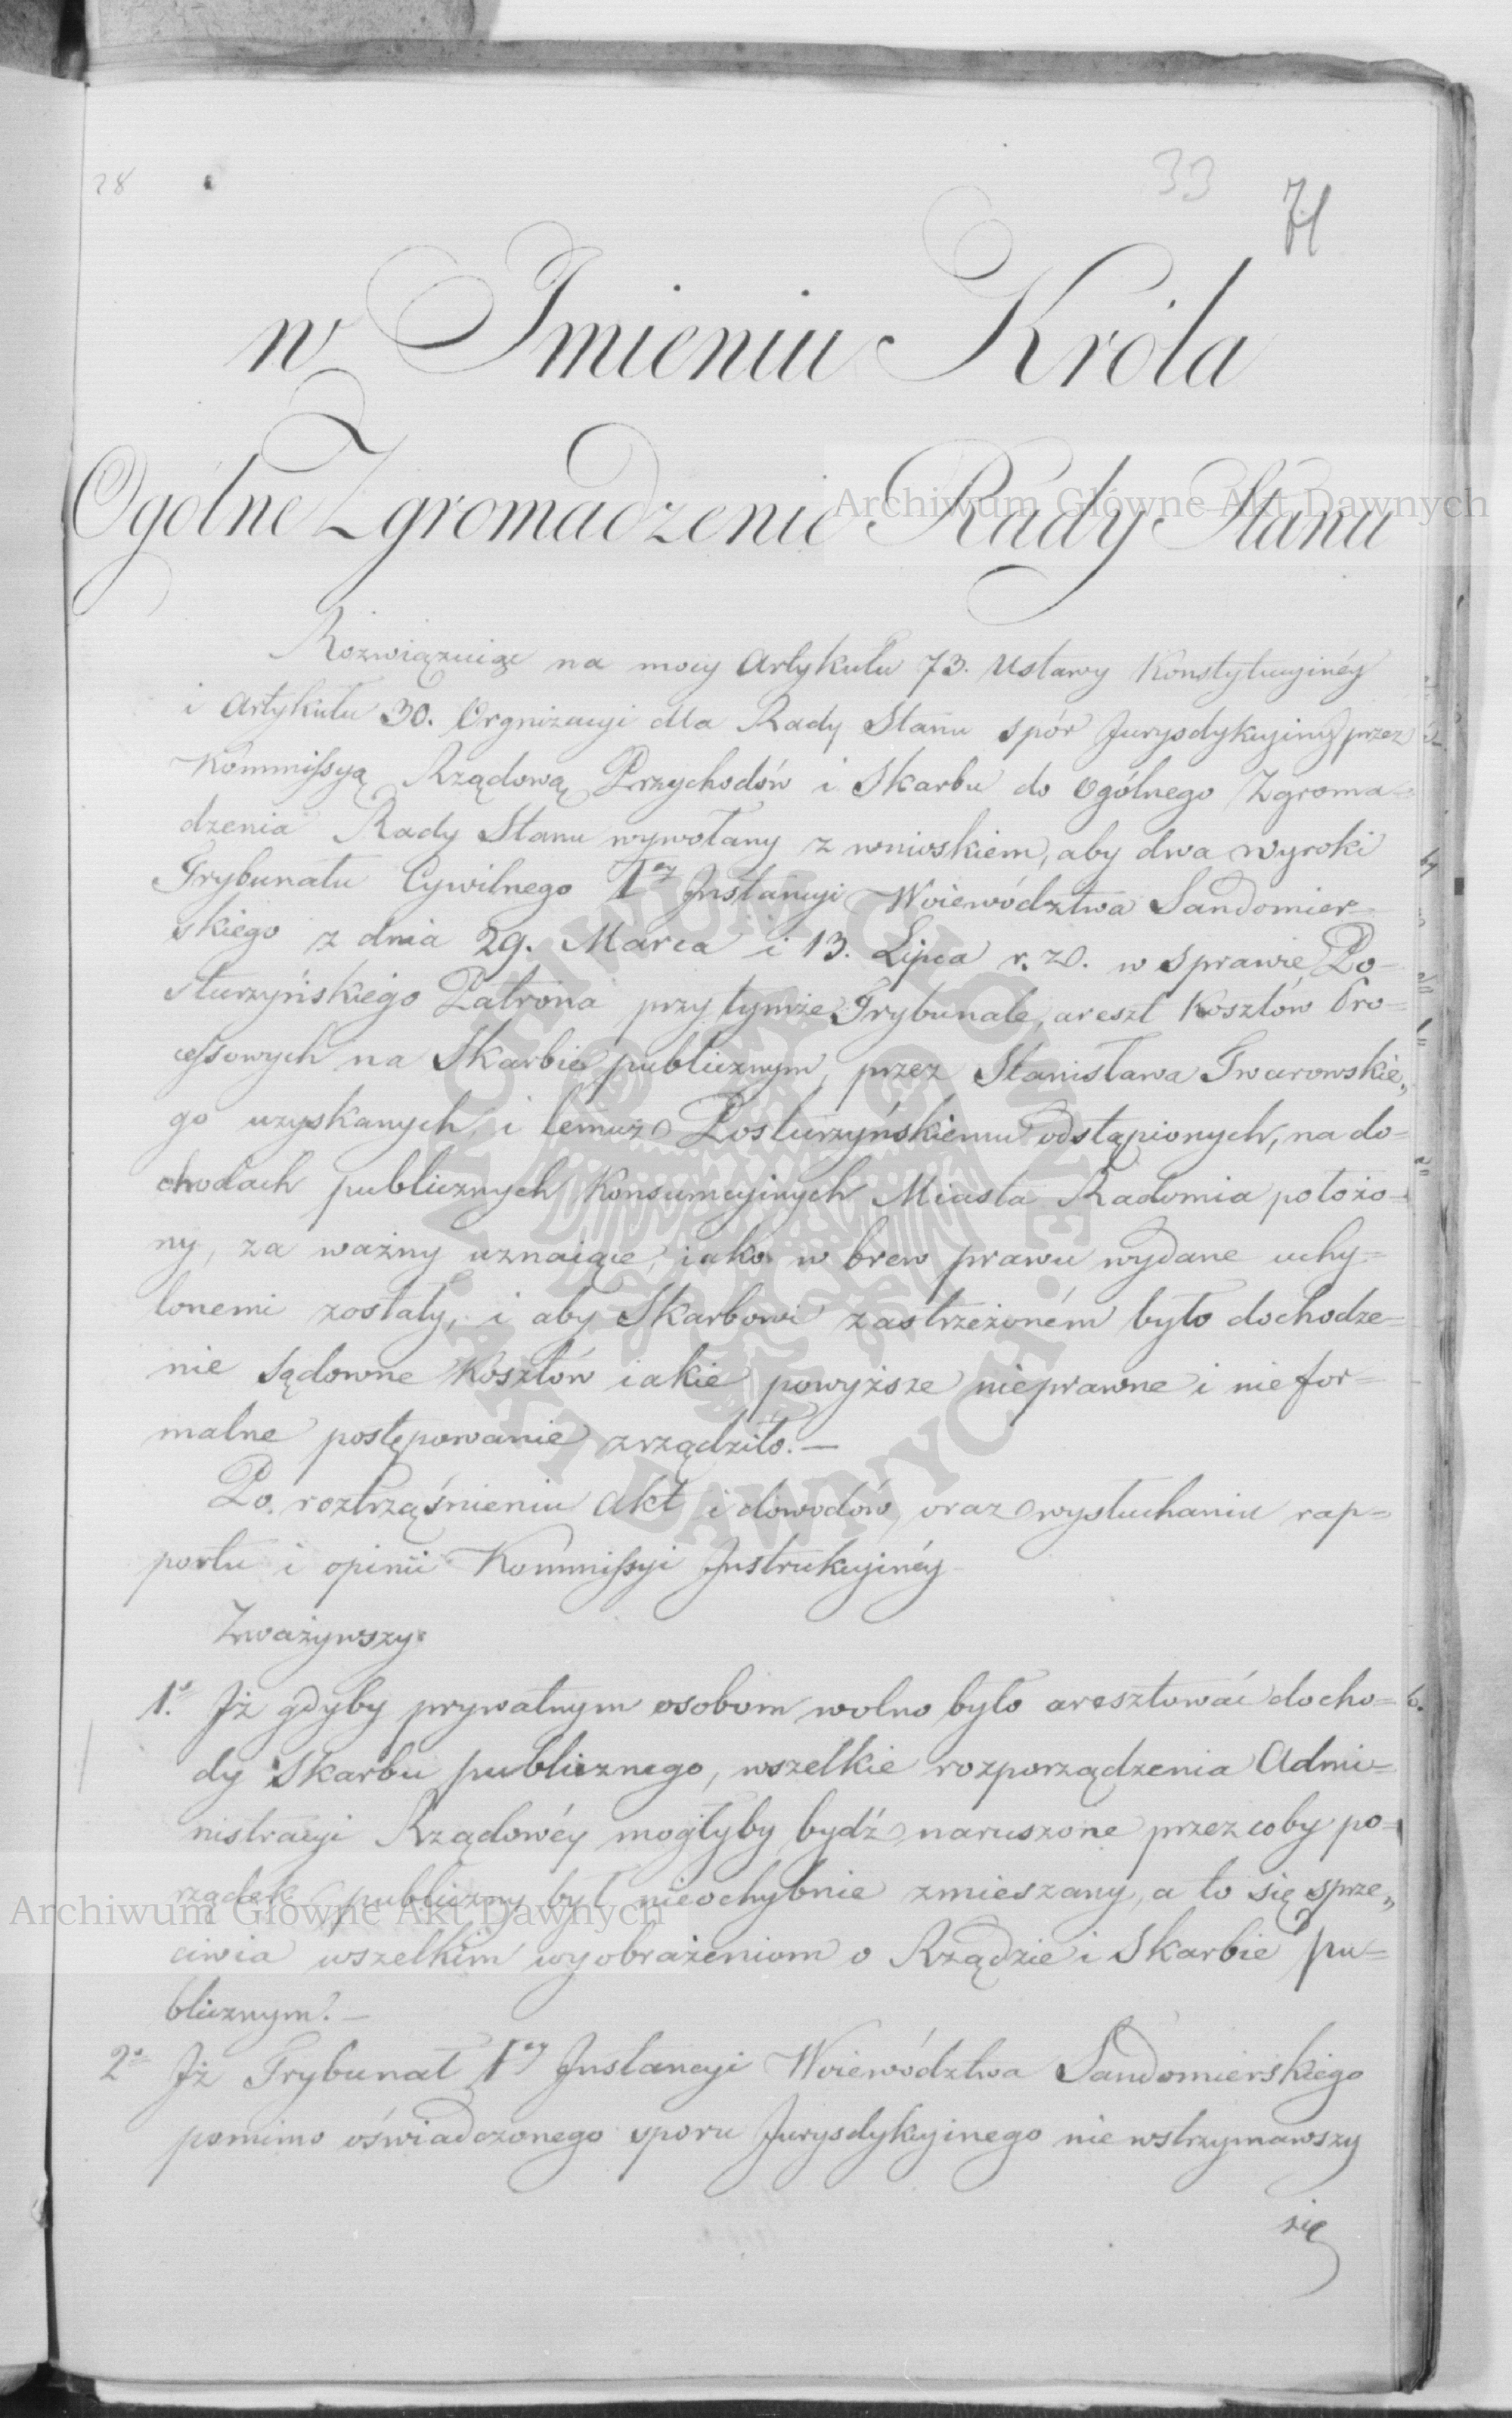 28
33
71
w Imieniu Króla
Ogólne Zgromadzenie Rady Stanu
Rozwiązuiąc na mocy Artykułu 73. Ustawy Konstytucyinéy
i Artykułu 30. Orgnizacyi dla Rady Stanu spór Jurysdykcyiny przez
Kommissyą Rządową Przychodów i Skarbu do Ogólnego Zgroma=
dzenia Rady Stanu wywołany z wnioskiem, aby dwa wyroki
Trybunału Cywilnego 1ey Instancyi Woiewództwa Sandomier=
skiego z dnia 29. Marca i 13. Lipca r. z. w sprawie Po=
sturzyńskiego Patrona przy tymże Trybunale, areszt Kosztów Pro=
cessowych na Skarbie publicznym, przez Stanisława Gwarowskie„
go uzyskanych, i temuż Posturzyńskiemu odstąpionych, na do=
chodach publicznych Konsumcyinych Miasta Radomia położo=
ny, za ważny uznaiące, iako w brew prawu wydane uchy=
lonemi zostały, i aby Skarbowi zastrzeżoném było dochodze=
nie Sądowne Kosztów iakie powyższe nieprawne i niefor=
malne postępowanie zrządziło.—
Po roztrząśnieniu Akt i dowodów, oraz wysłuchaniu rap=
portu i opinii Kommissyi Instrukcyinéy
Zważywszy
1.o Iż gdyby prywatnym osobom wolno było aresztować docho=
dy Skarbu publicznego, wszelkie rozporządzenia Admi=
nistracyi Rządowéy mogłyby bydź naruszone przez coby po=
rządek publiczny był nieochybnie zmieszany, a to się sprze„
ciwia wszelkim wyobrażeniom o Rządzie i Skarbie pu=
blicznym.—
2.o Iż Trybunał 1ey Instancyi Woiewództwa Sandomierskiego
pomimo oświadczonego sporu Jurysdykcyinego nie wstrzymawszy
się
Archiwum Główne Akt Dawnych
Archiwum Główne Akt Dawnych
ARCHIWUM GŁÓWNE AKT DAWNYCH